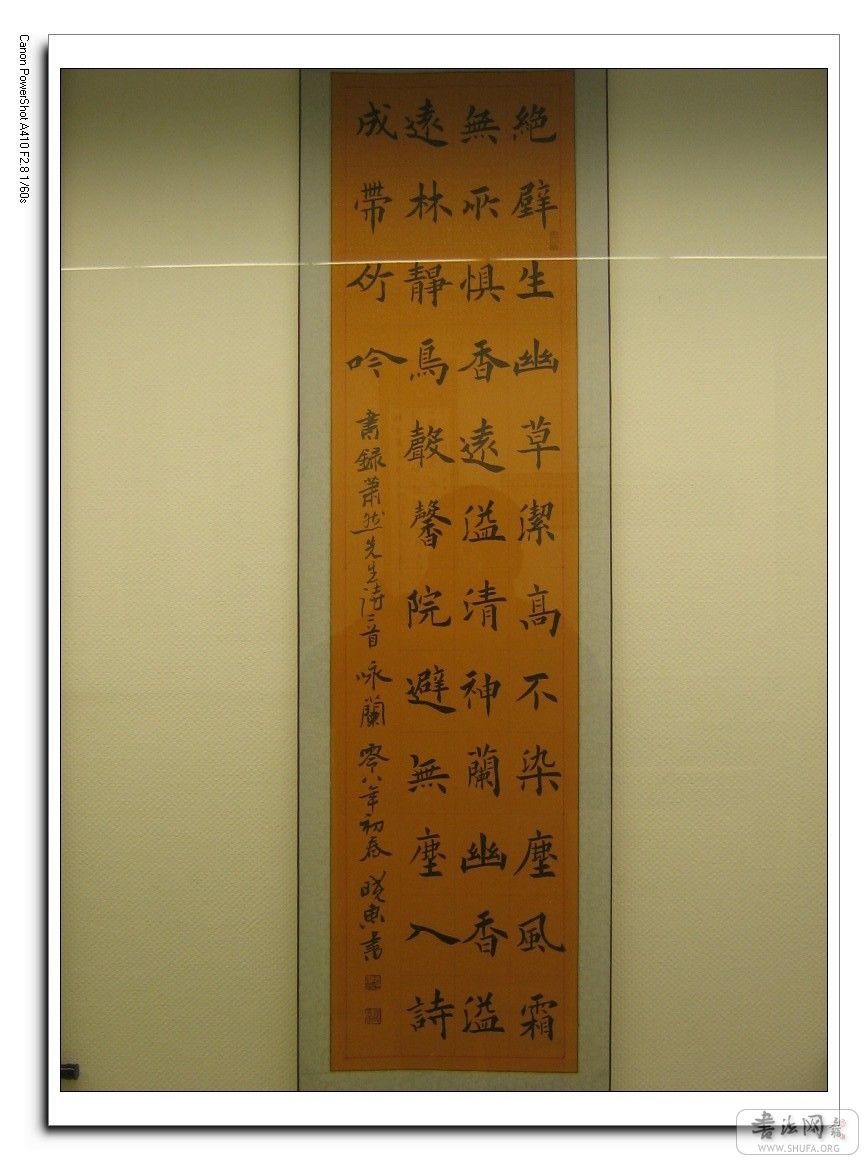 Canon PowerShot A410 F2.8 1/60s
絶壁生幽草潔高不染塵風霜
無所懼香遠溢清神蘭幽香溢
遠林靜鳥聲馨院避無塵入詩
成帶竹吟
書録蕭然先生詩三首 咏蘭 零八年初春 曉惠書
書法网
WWW.SHUFA.ORG